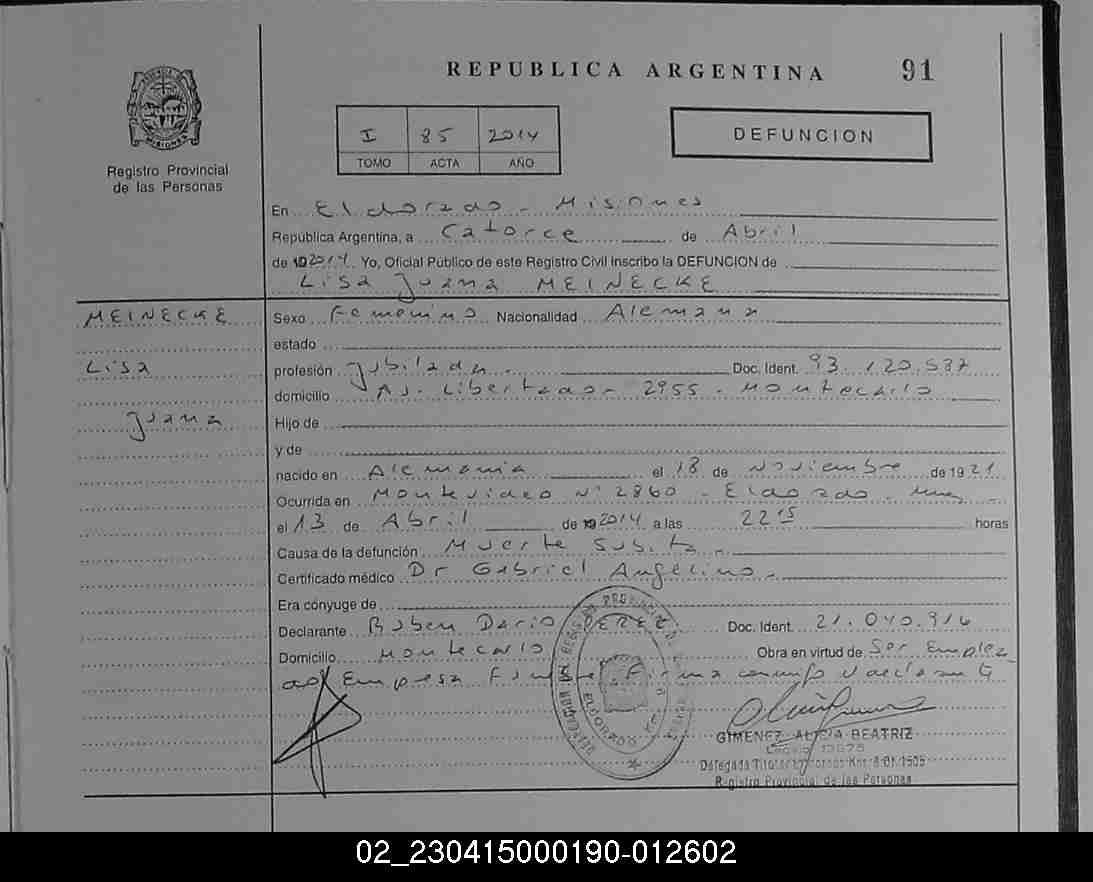 REPUBLICA ARGENTINA 91
MISIONES
Registro Provincial
de las Personas
I 85 2014
TOMO ACTA AÑO
DEFUNCION
En Eldorado - Misiones
República Argentina, a Catorce de Abril
de 192014 Yo, Oficial Público de este Registro Civil inscribo la DEFUNCION de
Lisa Juana MEINECKE
MEINECKE
Lisa
Juana
Sexo Femenino Nacionalidad Alemana
estado
profesión Jubilada Doc. Ident. 93.120.537
domicilio Av. Libertador 2955 - Montecarlo
Hijo de
y de
nacido en Alemania el 18 de Noviembre de 1921
Ocurrida en Montevideo N° 2860 - Eldorado -
el 13 de Abril de 192014 a las 22 15 horas
Causa de la defunción Muerte Subita -
Certificado médico Dr Gabriel Angelino -
Era cónyuge de
Declarante Ruben Dario PEREZ Doc. Ident. 21.040.916
Domicilio Montecarlo Obra en virtud de Ser Emplea
do Empresa Firma
ELDORADO
GIMENEZ ALICIA BEATRIZ
Registro Provincial de las Personas
02_230415000190-012602